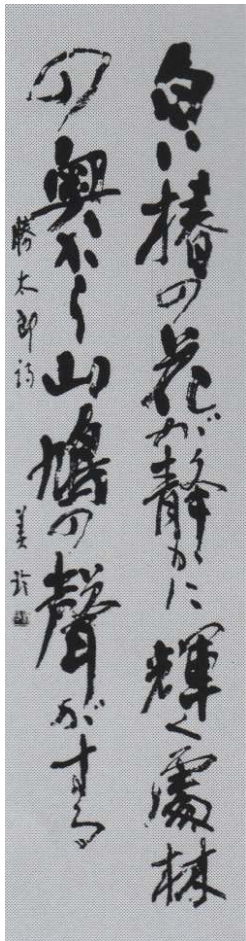 白い椿の花が静かに輝く處林
の奥から山鳩の聲がする
勝太郎詩
美